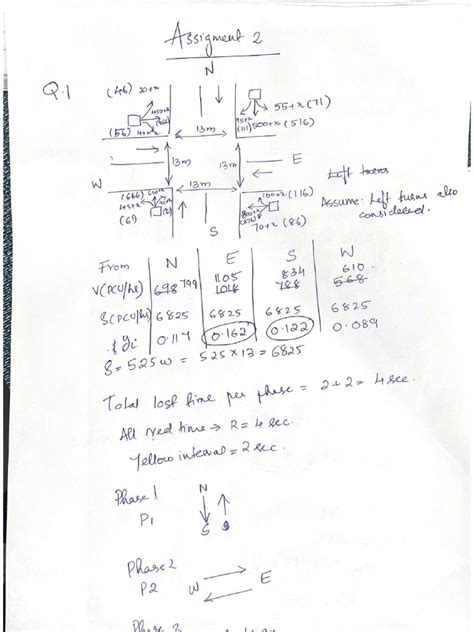 Assigment 2
Q.1
N
(46) 30+x
(56) 40+x
55+x (71)
95+x (111)
500+x (516)
13m
13m
13m
E
W
13m
45+x (61)
S
100+x (116)
70+x (86)
Left turns
Assume: Left turns also considered.
From N E S W
V(PCU/hr) 698 799 1105 834 788 610 568
S(PCU/hr) 6825 6825 6825 6825
yi 0.117 0.162 0.122 0.089
S = 525w = 525×13 = 6825
Total lost time per phase = 2+2 = 4 sec.
All red time → R = 4 sec.
Yellow interval = 2 sec.
Phase 1
P1
N
S
Phase 2
P2 W E